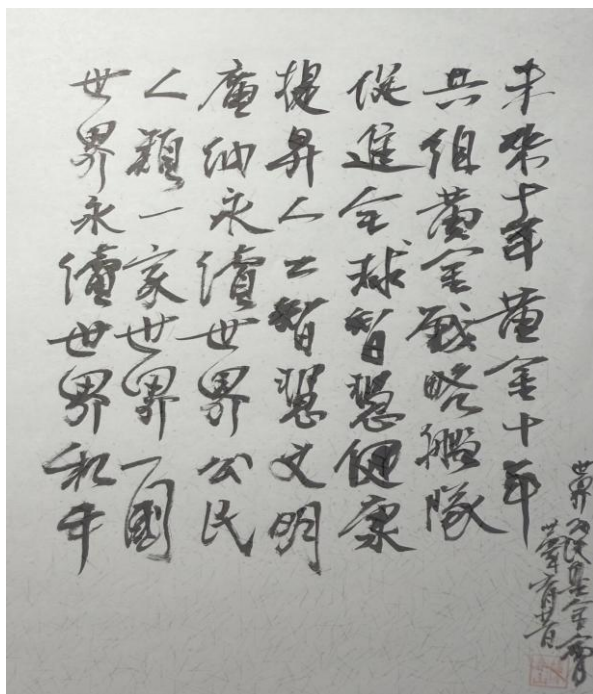 未來十年黃金十年
共組黃金戰略艦隊
促進全球智慧健康
提昇人工智慧文明
廣納永續世界公民
人類一家世界一國
世界永續世界和平
世界公民